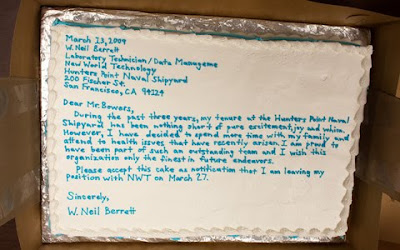 March 13, 2009
W. Neil Berrett
Laboratory Technician/Data Manageme
New World Technology
Hunters Point Naval Shipyard
200 Fischer St.
San Francisco, CA 94124
Dear Mr. Bowers,
During the past three years, my tenure at the Hunters Point Naval
Shipyard has been nothing short of pure excitement, joy and whim.
However, I have decided to spend more time with my family and
attend to health issues that have recently arisen. I am proud to
have been part of such an outstanding team and I wish this
organization only the finest in future endeavors.
Please accept this cake as notification that I am leaving my
position with NWT on March 27.
Sincerely,
W. Neil Berrett